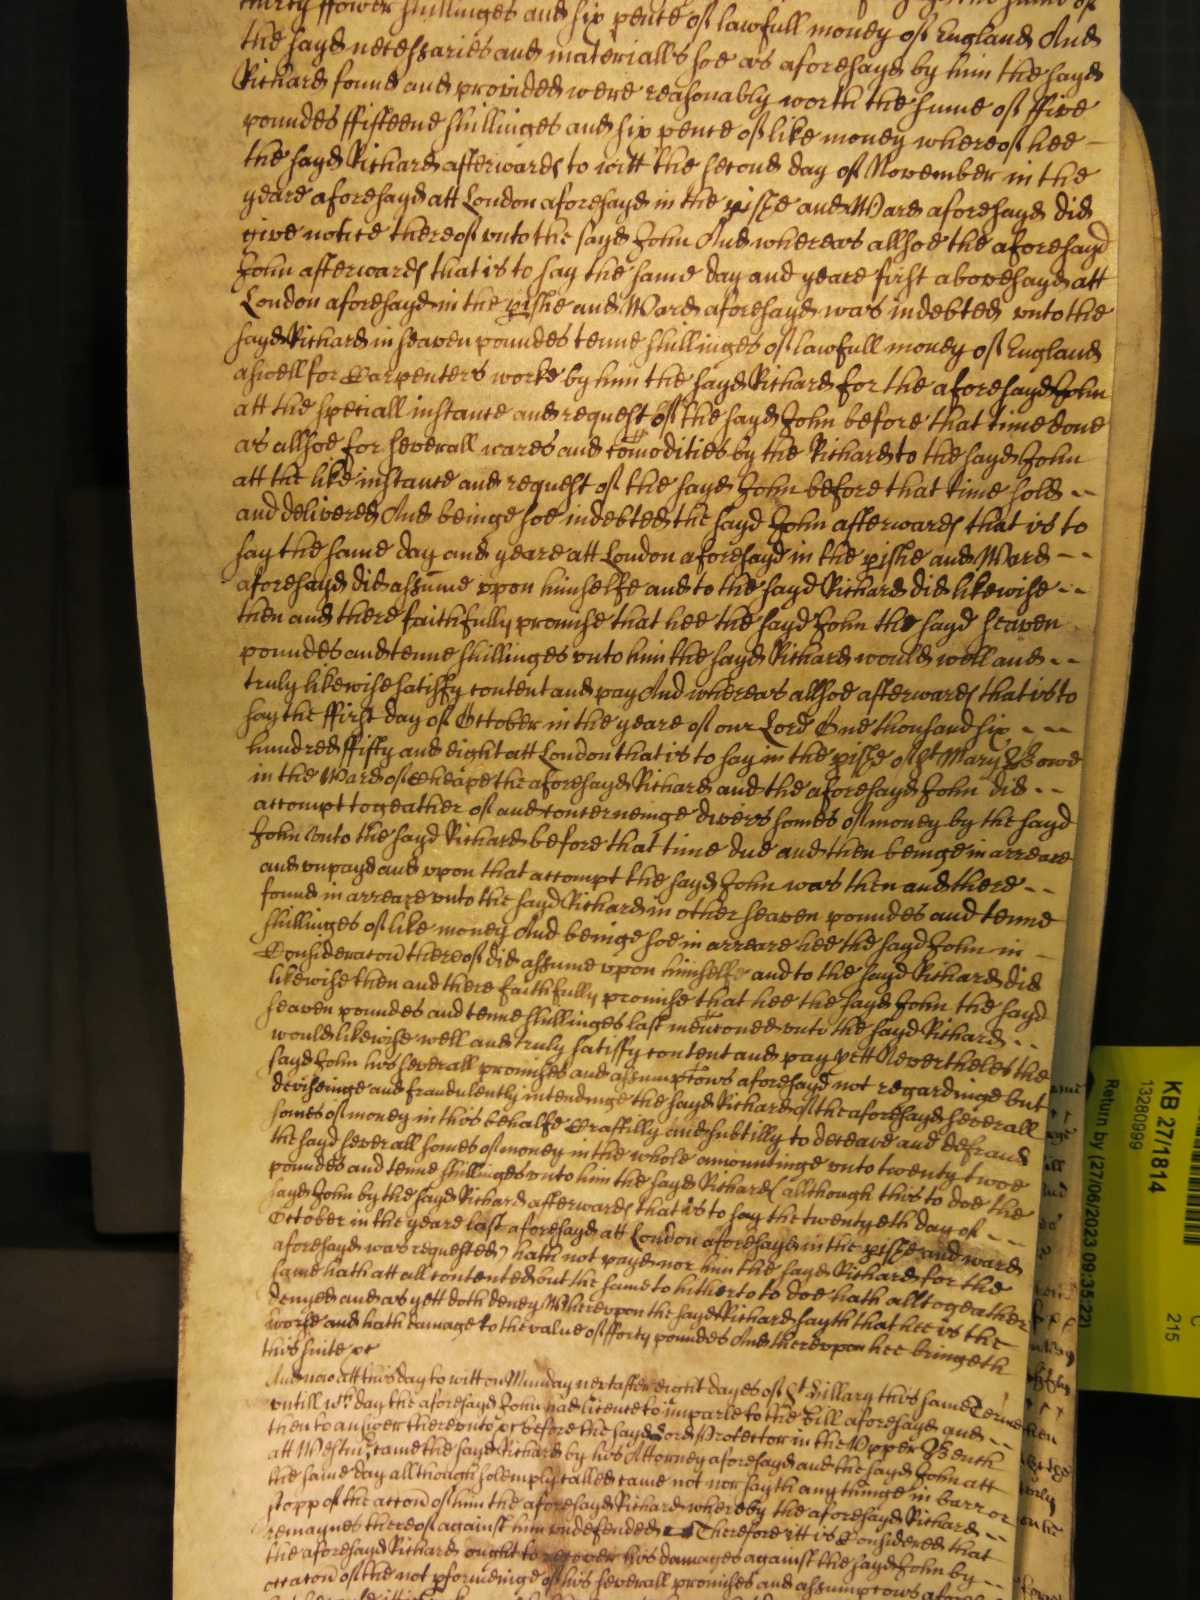 thirty ffower shillinges and six pence of lawfull money of England And
the sayd necessaries and materialls soe as aforesayd by him the sayd
Richard found and provided were reasonably worth the sume of ffive
poundes ffifteene shillinges and six pence of like money whereof hee
the sayd Richard afterwards to witt the second day of November in the
yeare aforesayd att London aforesayd in the pishe and Ward aforesayd did
give notice thereof unto the sayd John And whereas allsoe the aforesayd
John afterwards that is to say the same day and yeare first abovesayd att
London aforesayd in the pishe and Ward aforesayd was indebted unto the
sayd Richard in seaven poundes tenne shillinges of lawfull money of England
aswell for Carpenters worke by him the sayd Richard for the aforesayd John
att the speciall instance and request of the sayd John before that time done
as allsoe for severall wares and comodities by the Richard to the sayd John
att the like instance and request of the sayd John before that time sold --
and delivered And beinge soe indebted the sayd John afterwards that is to
say the same day and yeare att London aforesayd in the pishe and Ward --
aforesayd did assume upon himselfe and to the sayd Richard did likewise --
then and there faithfully promise that hee the sayd John the sayd seaven
poundes and tenne shillinges unto him the sayd Richard would well and --
truly likewise satisfy content and pay And whereas allsoe afterwards that is to
say the ffirst day of October in the yeare of our Lord One thousand six ---
hundred ffifty and eight att London that is to say in the pishe of St Mary Bowe
in the Ward of Cheape the aforesayd Richard and the aforesayd John did --
accompt togeather of and concerneinge divers somes of money by the sayd
John unto the sayd Richard before that time due and then beinge in arreare
and unpayd and upon that accompt the sayd John was then and there --
found in arreare unto the sayd Richard in other seaven poundes and tenne
shillinges of like money And beinge soe in arreare hee the sayd John in -
Consideracon thereof did assume upon himselfe and to the sayd Richard did
likewise then and there faithfully promise that hee the sayd John the sayd
seaven poundes and tenne shillinges last mencconed unto the sayd Richard --
would likewise well and truly satisfy content and pay yett Neverthelesse the
sayd John his severall promises and assumptows aforesayd not regardinge but
deviseinge and fraudulently intendinge the sayd Richard of the aforesayd severall
somes of money in this behalfe Craftily and subtilly to deceave and defraud
the sayd severall somes of money in the whole amountinge unto twenty twoe
poundes and tenne shillinges unto him the sayd Richard (although this to doe the
sayd John by the sayd Richard afterwards that is to say the twentyeth day of ---
October in the yeare last aforesayd att London aforesayd in the pishe and ward
aforesayd was requested) hath not payd nor him the sayd Richard for the
same hath att all contented but the same to hitherto to doe hath alltogeather
denyed and as yett doth deney Whereupon the sayd Richard sayth that hee is the
worse and hath damage to the value of fforty poundes And thereupon hee bringeth
this suite &c
And now att this day to witt on Munday next after eight dayes of St Hillary this same Terme
untill wch day the aforesayd John had licence to imparle to the Bill aforesayd and --
then to answer thereunto &c before the sayd Lord Protector in the Upper Bench
att Westmr came the sayd Richard by his Attorney aforesayd and the sayd John att
the same day allthough solemply called came not nor sayth any thinge in barr or
stopp of the accon of him the aforesayd Richard whereby the aforesayd Richard --
remaynes thereof against him undefended Therefore itt is Considered that
the aforesayd Richard ought to recover his damages against the sayd John by --
occacon of the not pformeinge of his severall promises and assumptows
KB 27/1814
13280999
Return by (27/06/2023 09:35:22)
C
215